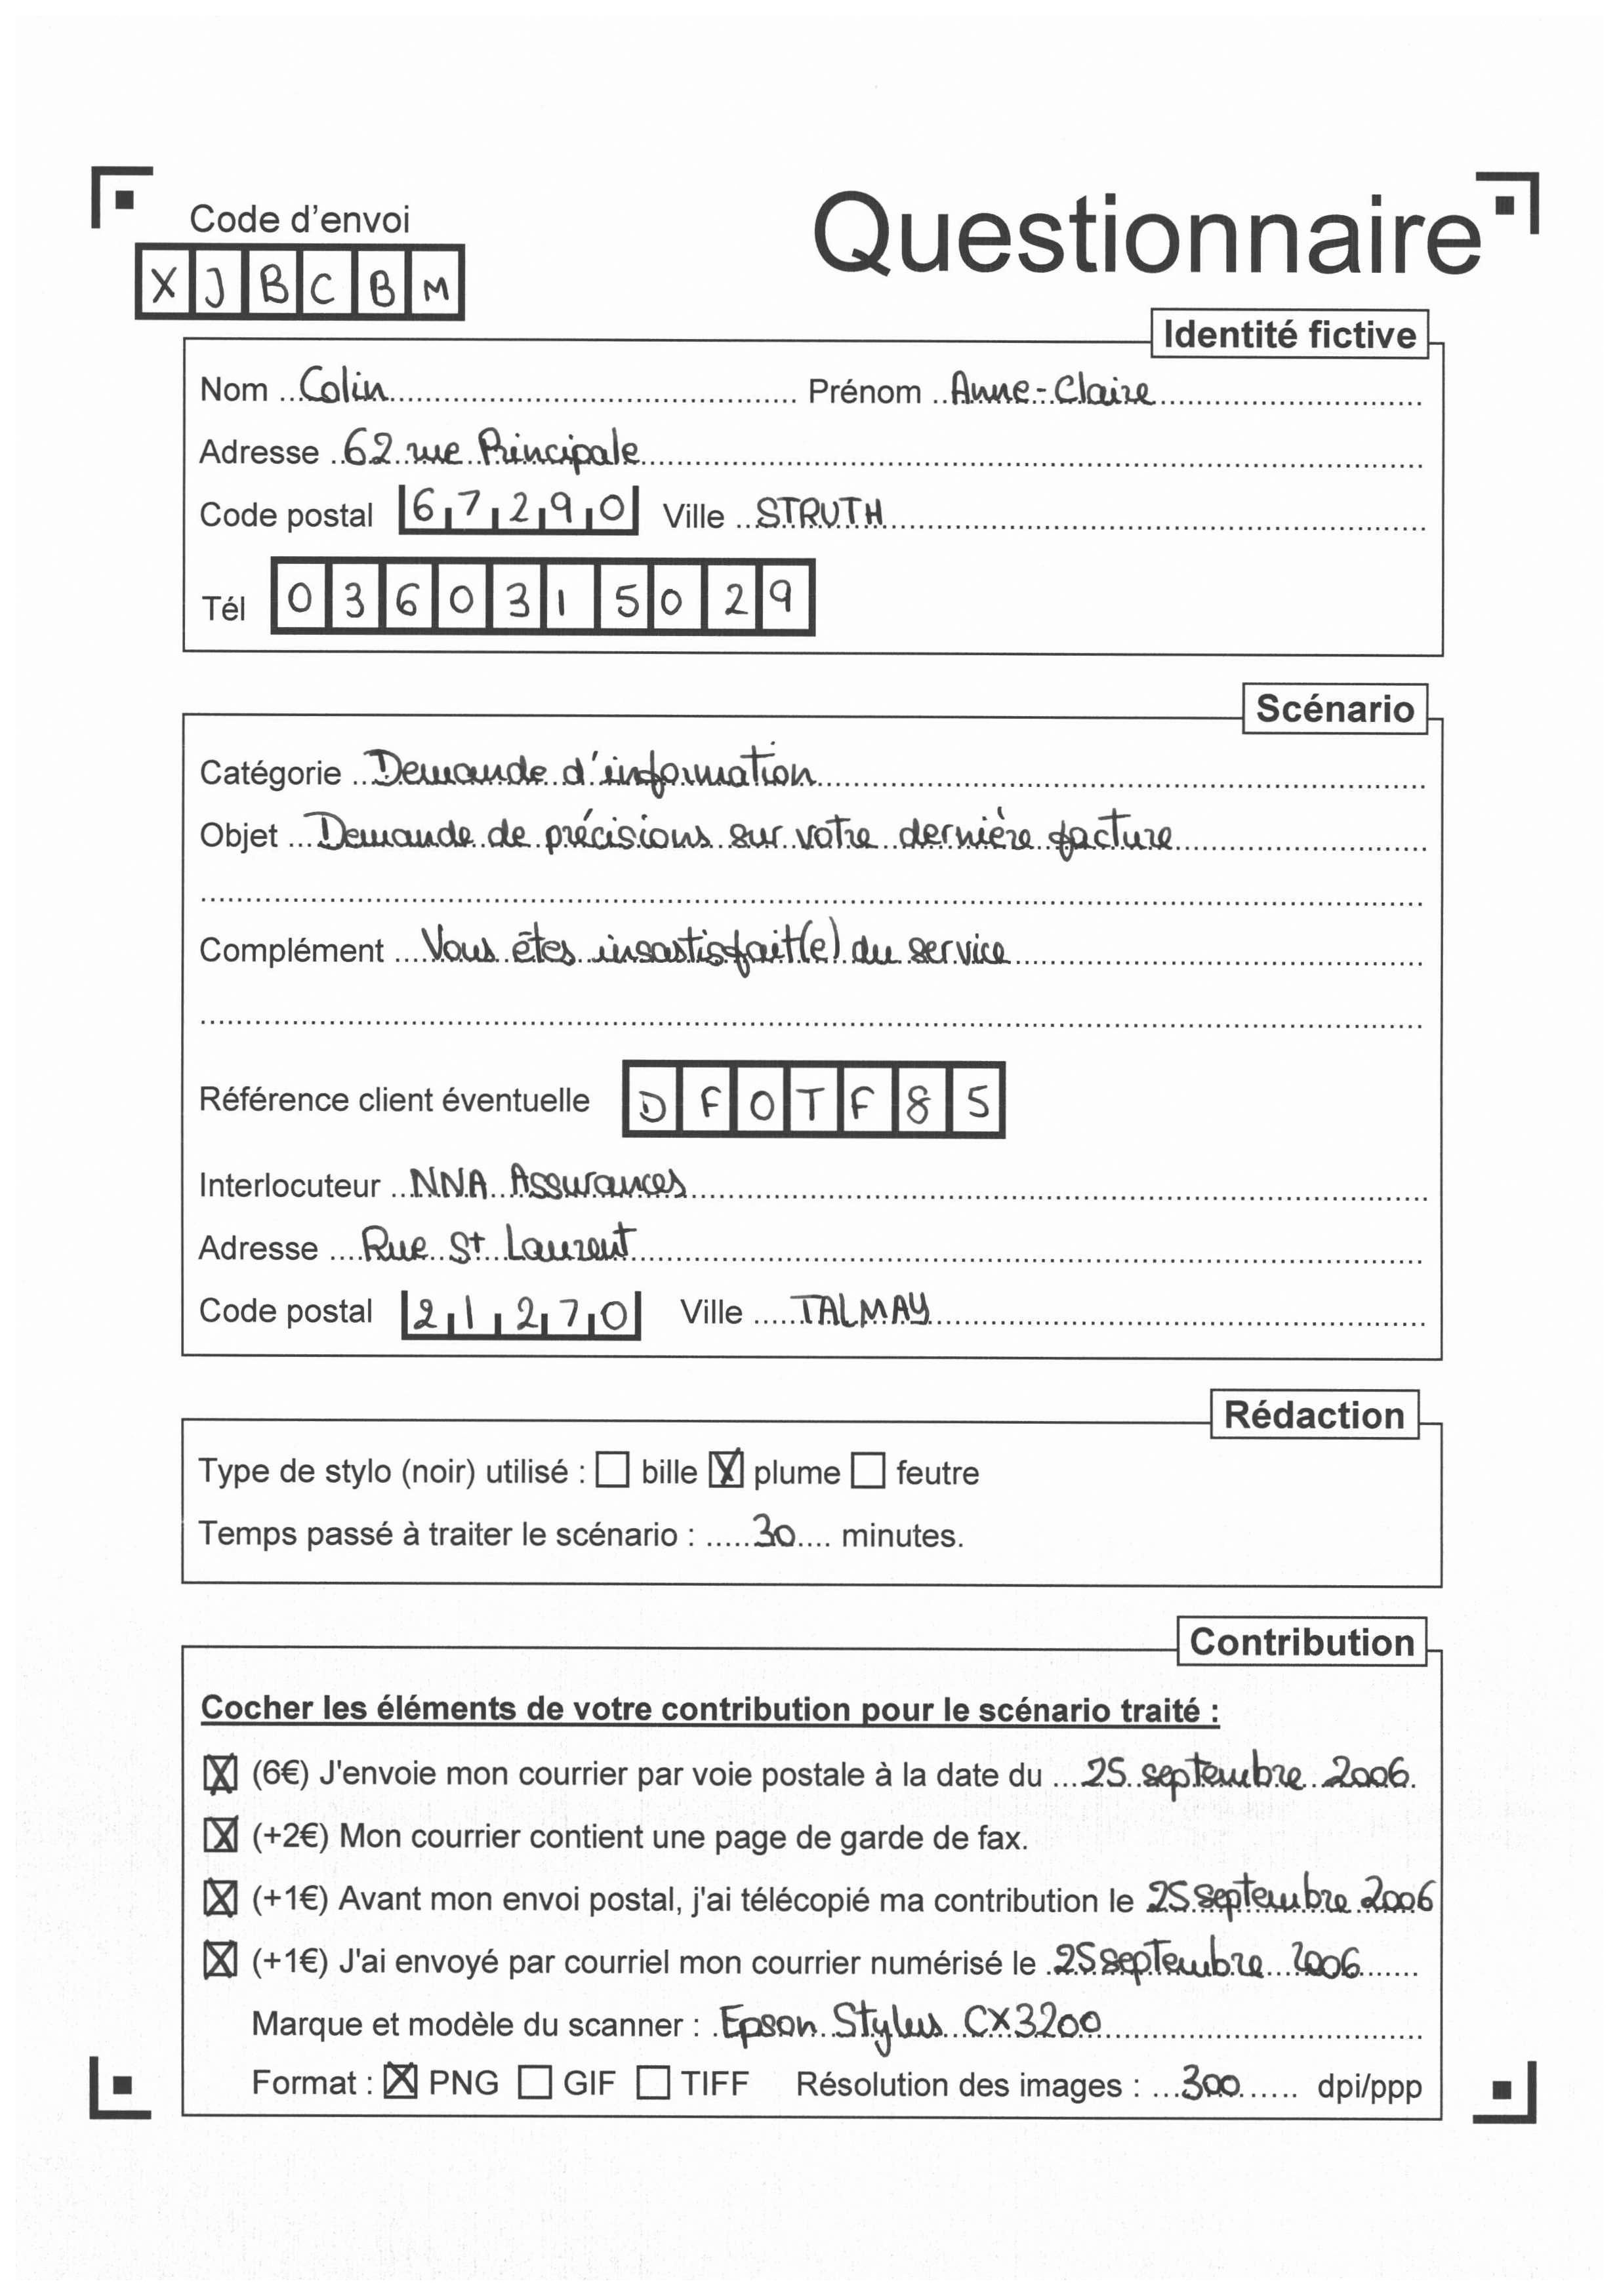 Code d'envoi
Questionnaire
X J B C B M
Identité fictive
Nom Colin Prénom Anne-Claire
Adresse 62 rue Principale
Code postal 67290 Ville STRUTH
Tél 0360315029
Scénario
Catégorie Demande d'information
Objet Demande de précisions sur votre dernière facture
Complément Vous êtes insastisfait(e) du service
Référence client éventuelle D F O T F 8 5
Interlocuteur NNA Assurances
Adresse Rue St Laurent
Code postal 21270 Ville TALMAY
Rédaction
Type de stylo (noir) utilisé : ☐ bille ☒ plume ☐ feutre
Temps passé à traiter le scénario : 30 minutes.
Contribution
Cocher les éléments de votre contribution pour le scénario traité :
☒ (6€) J'envoie mon courrier par voie postale à la date du 25 septembre 2006.
☒ (+2€) Mon courrier contient une page de garde de fax.
☒ (+1€) Avant mon envoi postal, j'ai télécopié ma contribution le 25 septembre 2006
☒ (+1€) J'ai envoyé par courriel mon courrier numérisé le 25 septembre 2006
Marque et modèle du scanner : Epson Stylus CX3200
Format : ☒ PNG ☐ GIF ☐ TIFF Résolution des images : 300 dpi/ppp